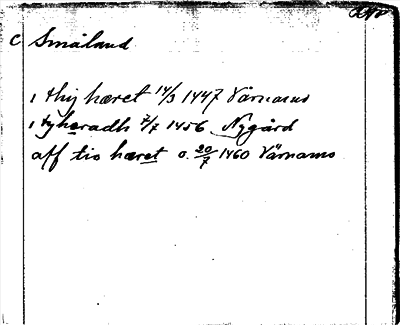 C Småland
i thij hæret 14/3 1447 Värnamo
i tyheradh 7/7 1456 Nygård
aff tio hæret o. 20/7 1460 Värnamo